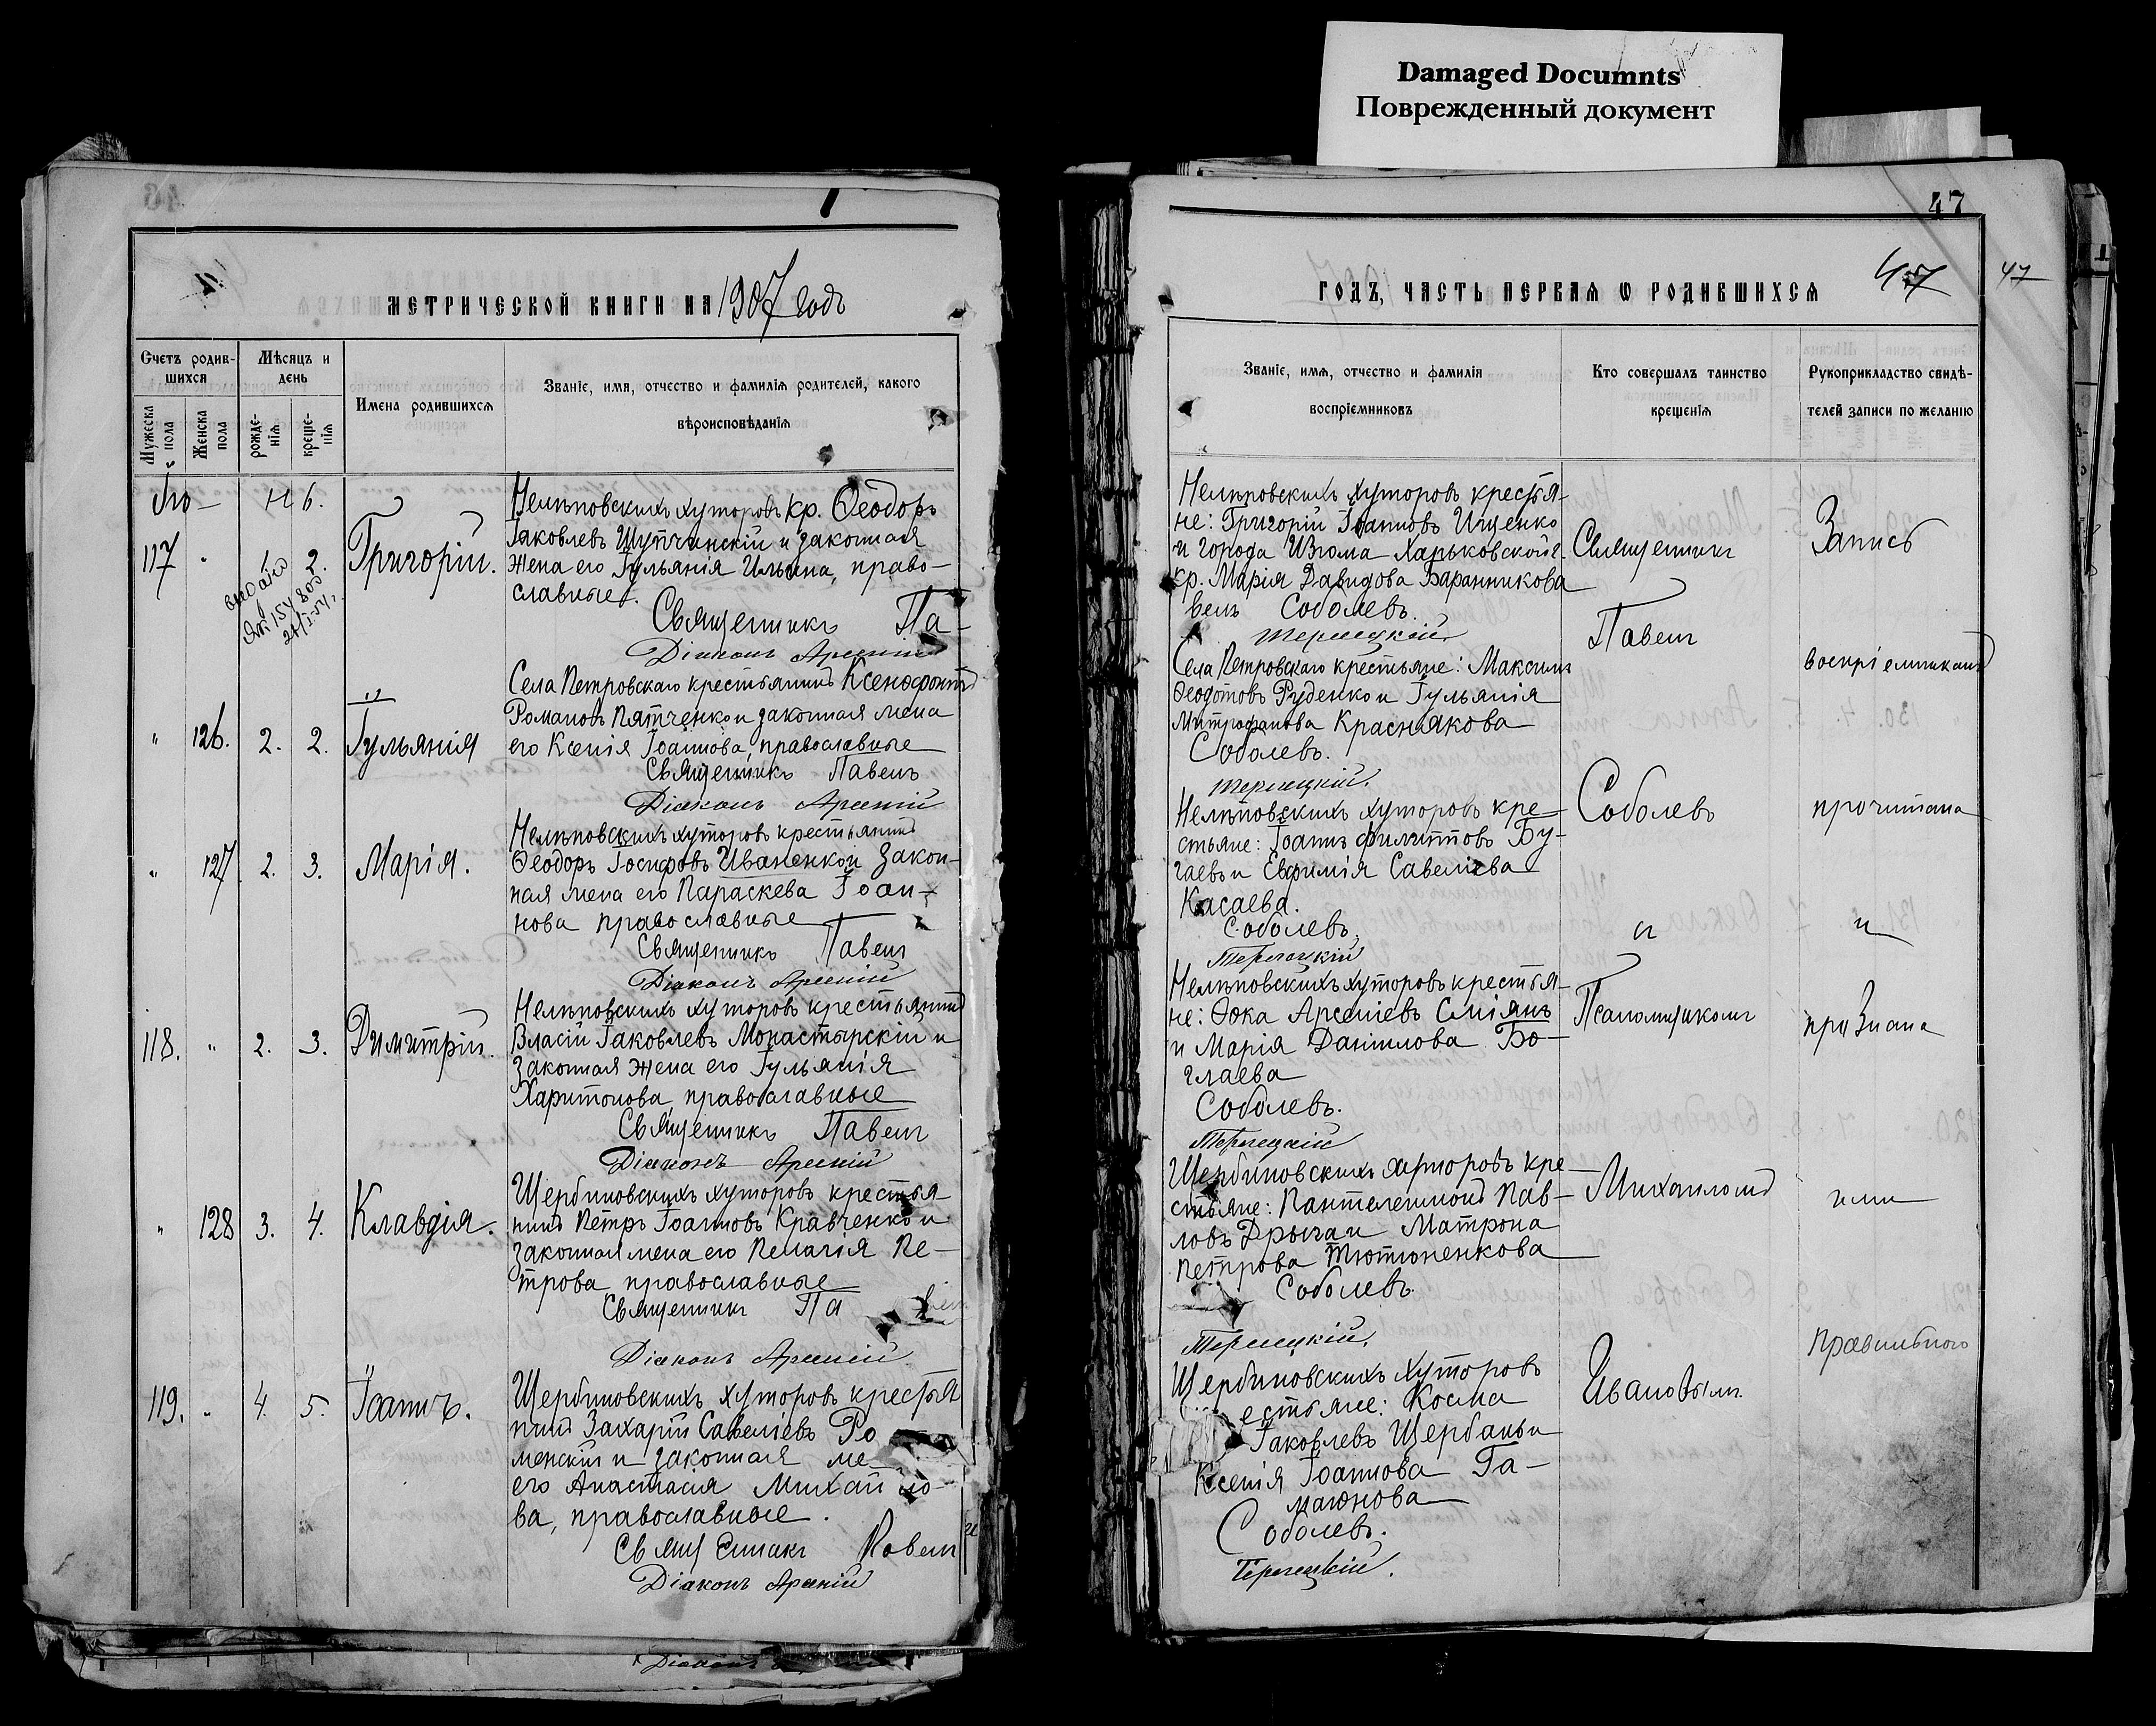 Damaged Documnts
Поврежденный документ
МЕТРИЧЕСКОЙ КНИГИ НА 1907 годъ
Счетъ родив-
шихся
Мѣсяцъ и
день
Имена родившихся
Званіе, имя, отчество и фамилія родителей, какого
вѣроисповѣданія
Мужеска
пола
Женска
пола
рожде-
нія
креще-
нія
117
"
1.
2.
Григорій.
Нелѣповскихъ хуторовъ кр. Ѳеодоръ
Іаковлевъ Шутчинскій и законная
жена его Іульянія Ильина, право-
славные.
Священникъ Па-
Діаконъ Арсеній
"
126.
2.
2.
Іульянія
Села Петровскаго крестьянинъ Ксенофонтъ
Романовъ Пятченко и законная жена
его Ксенія Іоаннова, православные
Священникъ Павелъ
Діаконъ Арсеній
"
127
2.
3.
Марія.
Нелѣповскихъ хуторовъ крестьянинъ
Ѳеодоръ Іосифовъ Иваненко и закон-
ная жена его Параскева Іоан-
нова православные
Священникъ Павелъ
Діаконъ Арсеній
118.
"
2.
3.
Димитрій.
Нелѣповскихъ хуторовъ крестьянинъ
Власій Іаковлевъ Монастырскій и
законная жена его Іульянія
Харитонова, православные
Священникъ Павелъ
Діаконъ Арсеній
"
128
3.
4.
Клавдія.
Щербиновскихъ хуторовъ крестья-
нинъ Петръ Іоанновъ Кравченко и
законная жена его Пелагія Пе-
трова, православные
Священникъ Павелъ
Діаконъ Арсеній
119.
"
4.
5.
Іоаннъ.
Щербиновскихъ хуторовъ крестья
нинъ Захарій Савеліевъ Ро
менскій и законная же
его Анастасія Михайло-
ва, православные.
Священникъ Павелъ
Діаконъ Арсеній
47
47
47
ГОДЪ, ЧАСТЬ ПЕРВАЯ Ѡ РОДИВШИХСЯ
Званіе, имя, отчество и фамилія
воспріемниковъ
Кто совершалъ таинство
крещенія
Рукоприкладство свидѣ-
телей записи по желанію
Нелѣповскихъ хуторовъ крестья-
не: Григорій Іоанновъ Ищенко
и города Изюма Харьковской г.
кр. Марія Давидова Баранникова
велъ Соболевъ.
Терлецкій
Села Петровскаго крестьяне: Максимъ
Ѳеодотовъ Руденко и Іульянія
Митрофанова Краснякова
Соболевъ.
Терлецкій.
Нелѣповскихъ хуторовъ кре-
стьяне: Іоаннъ Филипповъ Бу-
гаевъ и Евфимія Савеліева
Касаева.
Соболевъ.
Терлецкій
Нелѣповскихъ хуторовъ крестья-
не: Ѳока Арсеніевъ Сміянъ
и Марія Даніилова Бо-
глаева
Соболевъ.
Терлецкій
Щербиновскихъ хуторовъ кре-
стьяне: Пантелеимонъ Пав-
ловъ Дрыга и Матрона
Петрова Тютюненкова
Соболевъ.
Терлецкій.
Щербиновскихъ хуторовъ
естьяне: Косма
Іаковлевъ Щербакъ и
Ксенія Іоаннова Га-
маюнова
Соболевъ.
Терлецкій.
Священникъ
Павелъ
Соболевъ
и
Псаломщикомъ
Михаиломъ
Ивановымъ
Запись
воспріемниками
прочитана
и
признана
ими
правильною